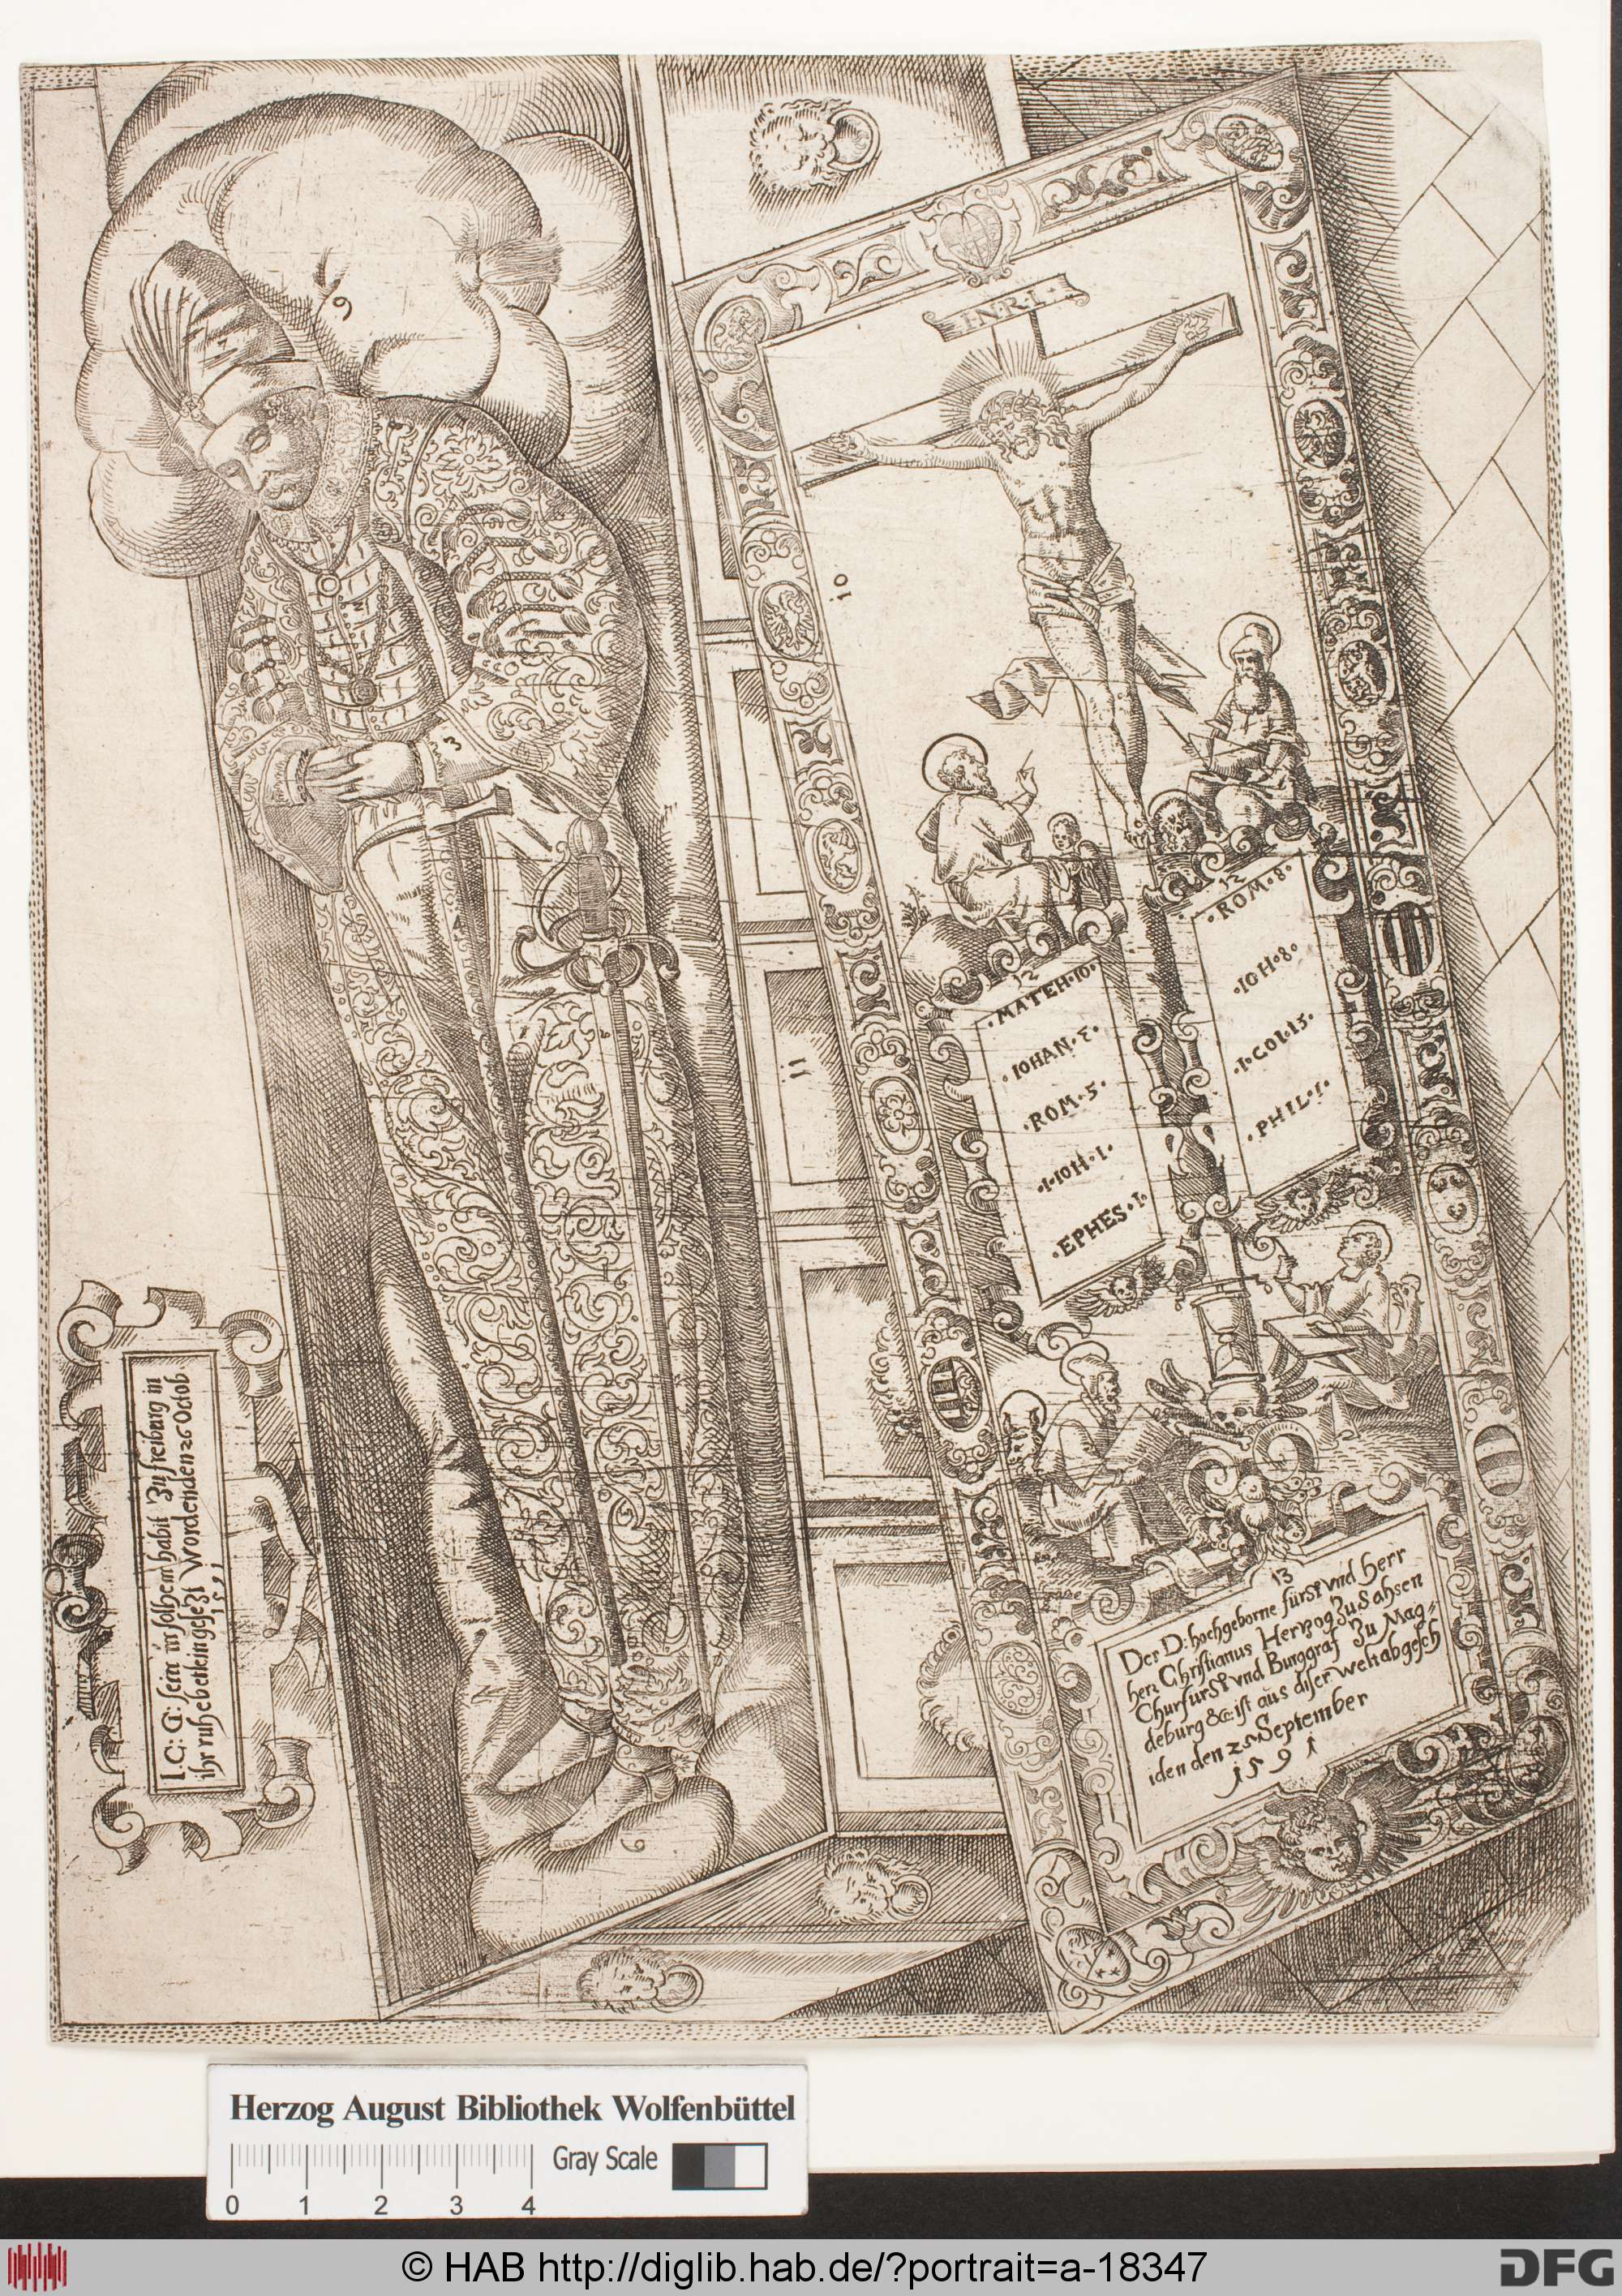 I.C: G: sein in solhem habit Zu freiburg in
ihr ruhebetlein gesezt Worden den 26 Octob
1591
9
3
6
10
11
I·N·R·I·
12
·MATEH·10·
·IOHAN·3·
·ROM·5·
·I·IOH·I·
·EPHES·I·
12
·ROM·8·
·IOH·8·
·I·COI·15·
·PHIL·I·
13
Der D: hochgeborne fürst vnd Herr
herr Christianus Herzog Zu Sahsen
Churfurst vnd Burggraf Zu Mag-
deburg &c: ist aus diser welt abgesch
iden den 25 September
1591
Herzog August Bibliothek Wolfenbüttel
Gray Scale
0 1 2 3 4
© HAB http://diglib.hab.de/?portrait=a-18347
DFG